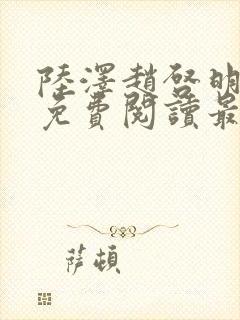 陸澤趙啓明
免費閱讀最
薩頓